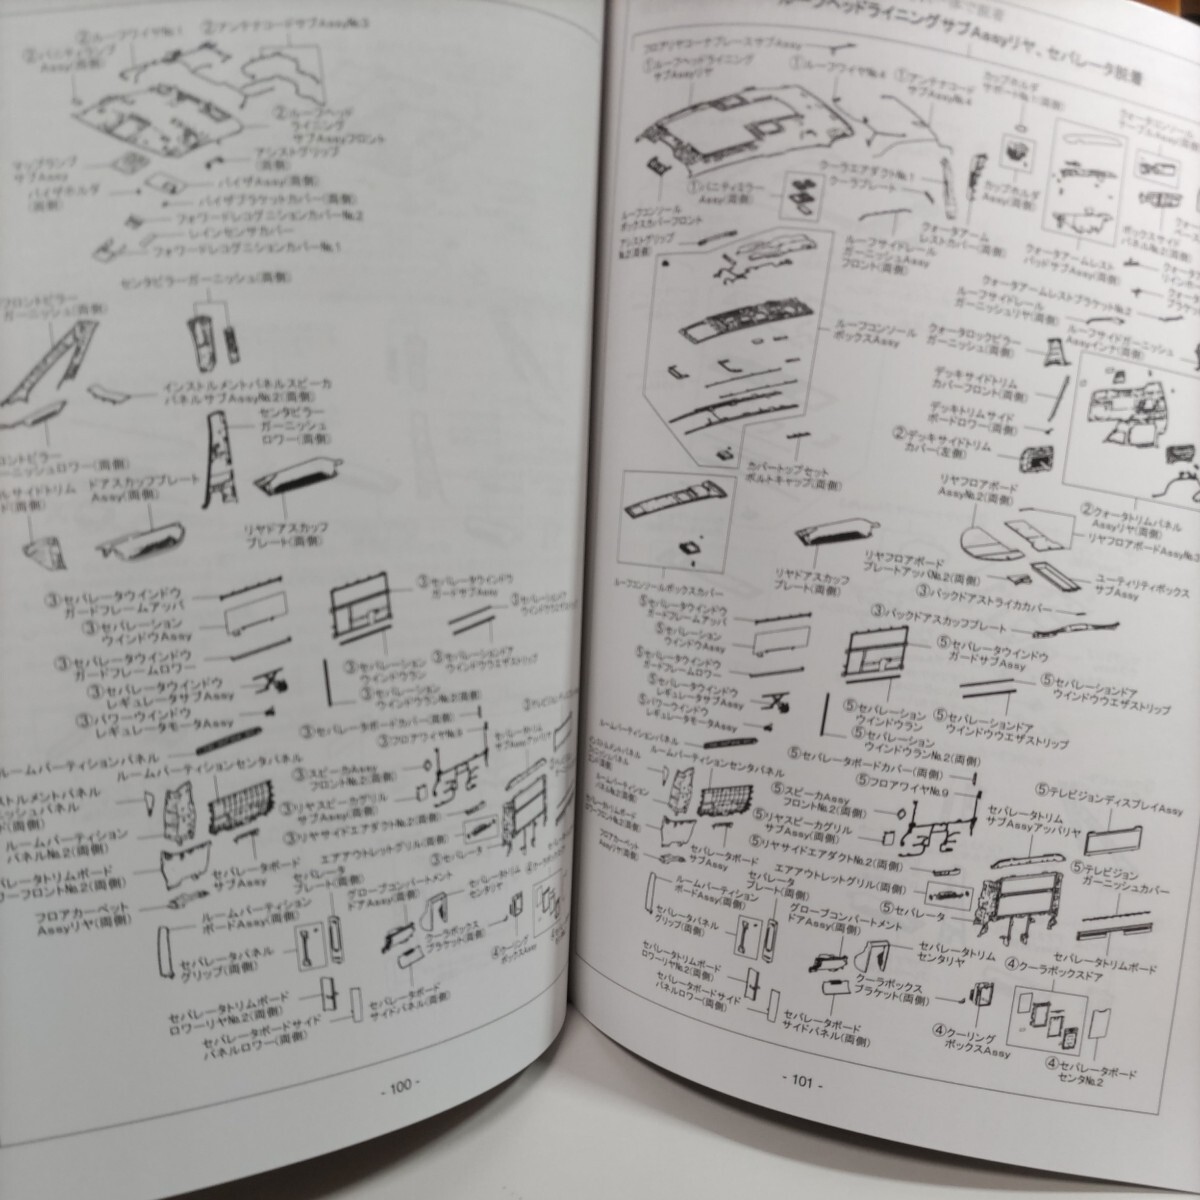 ②ルーフワイヤNo.1
②アンテナコードサブAssyNo.3
②バニティランプ
Assy(両側)
②ルーフヘッド
ライニング
サブAssyフロント
マップランプ
サブAssy
アシストグリップ
(両側)
バイザホルダ
(両側)
バイザAssy(両側)
バイザブラケットカバー(両側)
フォワードレコグニションカバーNo.2
レインセンサカバー
フォワードレコグニションカバーNo.1
センタピラーガーニッシュ(両側)
フロントピラー
ガーニッシュ(両側)
インストルメントパネルスピーカ
パネルサブAssyNo.2(両側)
センタピラー
ガーニッシュ
ロワー(両側)
ロントピラー
ーニッシュロワー(両側)
ルサイドトリム
ド(両側)
ドアスカッフプレート
Assy(両側)
リヤドアスカッフ
プレート(両側)
③セパレータウインドウ
ガードフレームアッパ
③セパレーション
ウインドウAssy
③セパレータウインドウ
ガードフレームロワー
③セパレータウインドウ
レギュレータサブAssy
③パワーウインドウ
レギュレータモータAssy
③セパレータウインドウ
ガードサブAssy
③セパレーション
ウインドウラン
③セパレーション
ウインドウランNo.2(両側)
③セパレーションドア
ウインドウウエザストリップ
ルームパーティションパネル
ルームパーティションセンタパネル
③セパレータボードカバー(両側)
③フロアワイヤNo.9
③スピーカAssy
フロントNo.2(両側)
③リヤスピーカグリル
サブAssy(両側)
③リヤサイドエアダクトNo.2(両側)
セパレータトリム
サブAssyアッパリヤ
ストルメントパネル
ッシュパネル
ド(両側)
ルームパーティション
パネルNo.2(両側)
パレータトリムボード
ワーフロントNo.2(両側)
フロアカーペット
Assyリヤ(両側)
セパレータボード
サブAssy
エアアウトレットグリル(両側)
③セパレータ
セパレータ
プレート(両側)
ルームパーティション
ボードAssy(両側)
グローブコンパートメント
ドアAssy(両側)
セパレータトリム
センタリヤ
クーラボックス
ブラケット(両側)
④クーリング
ボックスAssy
セパレータパネル
グリップ(両側)
セパレータトリムボード
ロワーリヤNo.2(両側)
セパレータボードサイド
パネルロワー(両側)
セパレータボード
サイドパネル(両側)
- 100 -
ルーフヘッドライニングサブAssyリヤ、セパレータ脱着
フロアリヤコーナブレースサブAssy
①ルーフヘッドライニング
サブAssyリヤ
①ルーフワイヤNo.4
①アンテナコード
サブAssyNo.4
カップホルダ
サポートNo.1(両側)
①バニティミラー
Assy(両側)
クーラエアダクトNo.1
クーラプレート
カップホルダ
Assy(両側)
クォータアーム
レストカバー(両側)
クォータアームレスト
パッドサブAssy(両側)
ボックスサイド
パネルNo.2(両側)
ルーフコンソール
ボックスカバーフロント
アシストグリップ
No.2(両側)
ルーフサイドレール
ガーニッシュAssy
フロント(両側)
ルーフコンソール
ボックスAssy
クォータアームレストブラケットNo.2
ルーフサイドレール
ガーニッシュリヤ(両側)
ルーフサイドガーニッシュ
Assyインナ(両側)
クォータロックピラー
ガーニッシュ(両側)
デッキサイドトリム
カバーフロント(両側)
デッキトリムサイド
ボードロワー(両側)
②デッキサイドトリム
カバー(左側)
カバートップセット
ボルトキャップ(両側)
リヤフロアボード
AssyNo.2(両側)
②クォータトリムパネル
Assyリヤ(両側)
リヤフロアボードAssyNo.3
リヤフロアボード
プレートアッパNo.2(両側)
ユーティリティボックス
サブAssy
ルーフコンソールボックスカバー
リヤドアスカッフ
プレート(両側)
③バックドアストライカカバー
③バックドアスカッフプレート
⑤セパレータウインドウ
ガードフレームアッパ
⑤セパレーション
ウインドウAssy
⑤セパレータウインドウ
ガードフレームロワー
⑤セパレータウインドウ
レギュレータサブAssy
⑤パワーウインドウ
レギュレータモータAssy
⑤セパレータウインドウ
ガードサブAssy
⑤セパレーション
ウインドウラン
⑤セパレーション
ウインドウランNo.2(両側)
⑤セパレーションドア
ウインドウウエザストリップ
⑤セパレーションドア
ウインドウウエザストリップ
ルームパーティションパネル
ルームパーティションセンタパネル
⑤セパレータボードカバー(両側)
⑤フロアワイヤNo.9
⑤スピーカAssy
フロントNo.2(両側)
⑤リヤスピーカグリル
サブAssy(両側)
⑤リヤサイドエアダクトNo.2(両側)
セパレータトリム
サブAssyアッパリヤ
⑤テレビジョンディスプレイAssy
⑤テレビジョン
ガーニッシュカバー
ルームパーティション
パネルNo.2(両側)
セパレータトリムボード
ロワーフロントNo.2(両側)
フロアカーペット
Assyリヤ(両側)
セパレータボード
サブAssy
エアアウトレットグリル(両側)
⑤セパレータ
セパレータ
プレート(両側)
ルームパーティション
ボードAssy(両側)
グローブコンパートメント
ドアAssy(両側)
セパレータトリム
センタリヤ
セパレータトリムボード
④クーラボックスドア
クーラボックス
ブラケット(両側)
④クーリング
ボックスAssy
④セパレータボード
センタNo.2
セパレータパネル
グリップ(両側)
セパレータトリムボード
ロワーリヤNo.2(両側)
セパレータボードサイド
パネルロワー(両側)
セパレータボード
サイドパネル(両側)
- 101 -